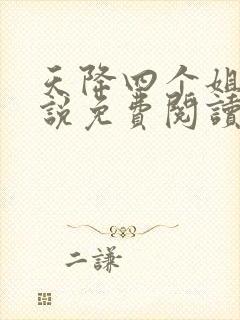 天降四个姐
説免費閱讀
二謙